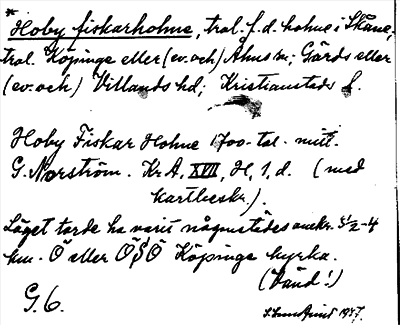 * Hoby fiskarholme, trol. f.d. holme i Skåne,
trol. Köpinge eller (ev. och) Åhus sn; Gärds eller
(ev. och) Villands hd; Kristianstads l.
Hoby Fiskar Holme 1700-tal. mitt.
G. Norström. KrA, XVII, H, 1, d. (med
kartbeskr.).
Läget torde ha varit någonstädes omkr. 3½-4
km. Ö eller ÖSÖ Köpinge kyrka.
(Sänd!)
G. 6.